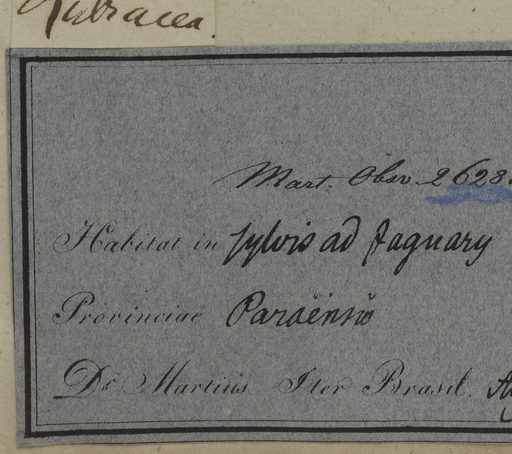 Mart. Obsr. 2628.
Habitat in sylvis ad Jaguary
Provinciae Paraënsis
Dr. Martius Iter Brasil.